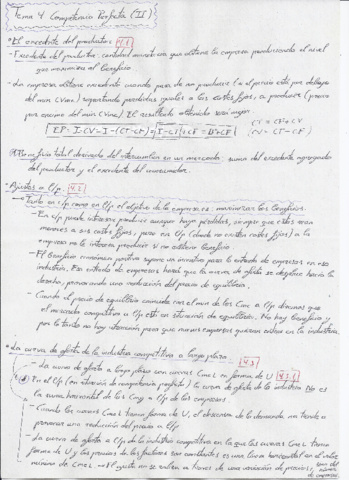 Tema 4 Competencia Perfecta (II)
• El excedente del productor: 4.1
- Excedente del productor: cantidad que obtiene la empresa produciendo el nivel
que maximiza el beneficio
- La empresa obtiene excedente cuando pasa de no producir (o el precio está por debajo
del min CVMe) soportando pérdidas iguales a los costes fijos, a producir (precio
por encima del min CVMe). El resultado obtenido será igual
CT = CF + CV
CV = CT - CF
EP = I - CV = I - (CT - CF) = I - CT + CF = B + CF
Beneficio total derivado del intercambio en un mercado: suma del excedente agregado
del productor y el excedente del consumidor.
• Ajustes a l/p. 4.2
- Tanto en c/p como en l/p el objetivo de la empresa es: maximizar los beneficios.
- En c/p puede interesar producir aunque haya pérdidas, siempre que estas sean
menores a los costes fijos, pero en l/p (donde no existen costes fijos) a la
empresa no le interesa producir si no obtiene beneficio
- El Beneficio económico positivo supone un incentivo para la entrada de empresas en esa
industria. Esa entrada de empresas hará que la curva de oferta se desplace hacia la
derecha, provocando una reducción del precio de equilibrio.
- Cuando el precio de equilibrio coincide con el min de los CMe a l/p diremos que
el mercado competitivo a l/p está en situación de equilibrio. No hay beneficio y
por lo tanto no hay atracción para que nuevas empresas quieran entrar en la industria.
• La curva de oferta de la industria competitiva a largo plazo. 4.3
- La curva de oferta a largo plazo con curvas CMeL en forma de U 4.3.1
En el l/p (en situación de competencia perfecta) la curva de oferta de la industria No es
la suma horizontal de los CMg a l/p de las empresas.
- Cuando las curvas CMeL tienen forma de U, el descenso de la demanda no tiende a
provocar una reducción del precio a l/p
- La curva de oferta a l/p de la industria competitiva en la que las curvas CMeL tienen
forma de U y los precios de los factores son constantes es una línea horizontal en el valor
mínimo de CMeL → El ajuste no se realiza a través de una variación de precios, sino del
número
de empresas